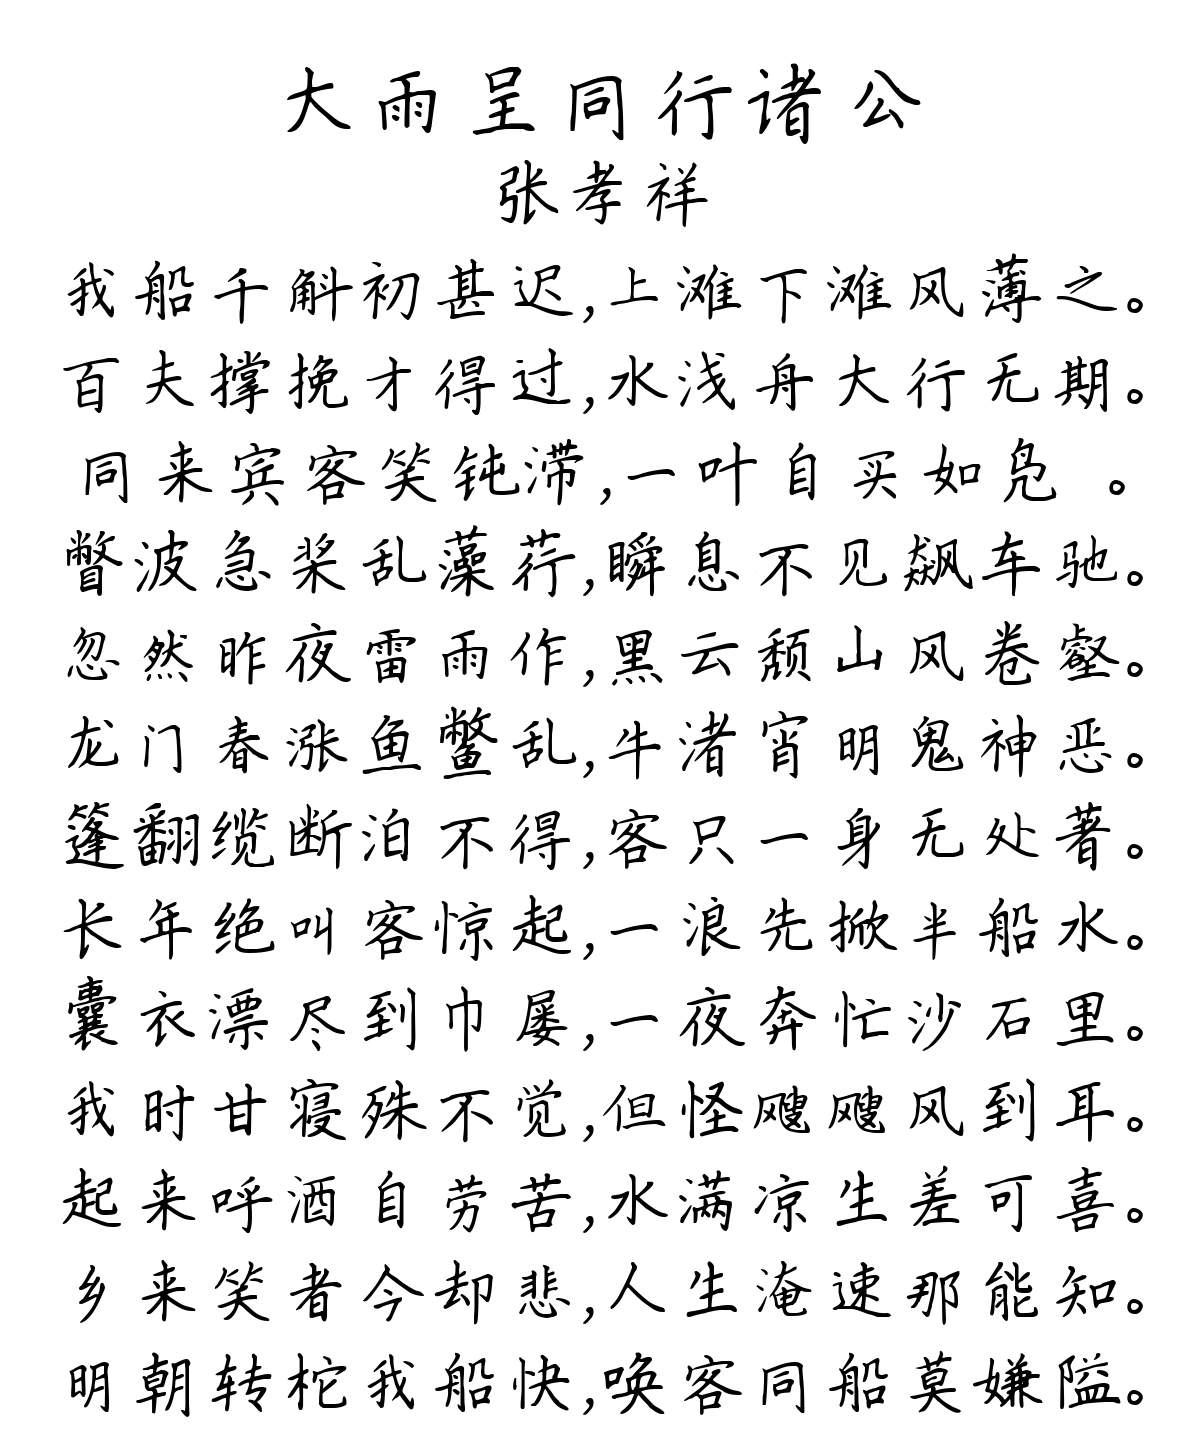 大雨呈同行诸公
张孝祥
我船千斛初甚迟,上滩下滩风薄之。
百夫撑挽才得过,水浅舟大行无期。
同来宾客笑钝滞,一叶自买如凫 。
瞥波急桨乱藻荇,瞬息不见飙车驰。
忽然昨夜雷雨作,黑云颓山风卷壑。
龙门春涨鱼鳖乱,牛渚宵明鬼神恶。
篷翻缆断泊不得,客只一身无处著。
长年绝叫客惊起,一浪先掀半船水。
囊衣漂尽到巾屦,一夜奔忙沙石里。
我时甘寝殊不觉,但怪飕飕风到耳。
起来呼酒自劳苦,水满凉生差可喜。
乡来笑者今却悲,人生淹速那能知。
明朝转柁我船快,唤客同船莫嫌隘。